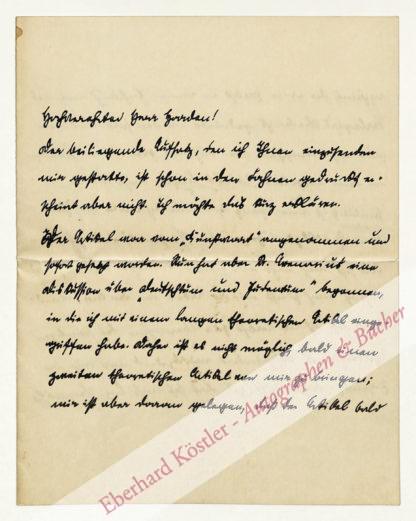 Hochverehrter Herr Harden!
Der beiliegende Aufsatz, den ich Ihnen einzusenden
mir gestatte, ist schon in den Fahnen gedruckt er-
scheint aber nicht. Ich möchte das kurz erklären.
Der Artikel war vom „Kunstwart" angenommen und
sofort gesetzt worden. Nun hat aber H. Avenarius eine
Diskussion über „Deutschtum und Judentum" begonnen,
in die ich mit einem langen theoretischen Artikel einge-
griffen habe. Daher ist es nicht möglich, bald einen
zweiten theoretischen Artikel von mir zu bringen;
mir ist aber daran gelegen, daß der Artikel bald
Eberhard Köstler - Autographen & Bücher